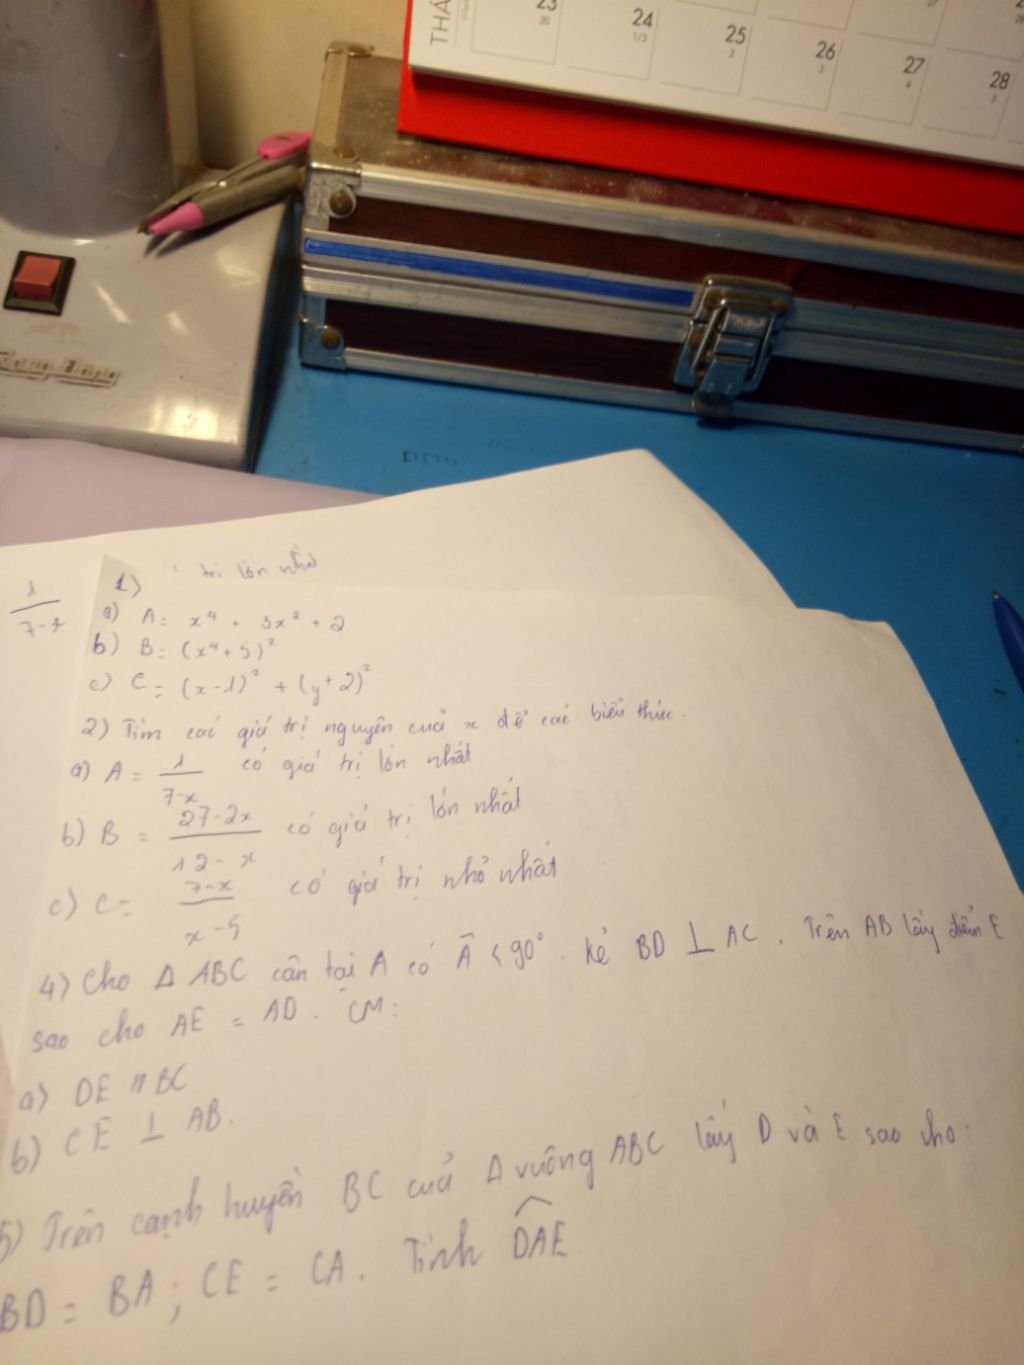 THÁ
23
30
24
1/3
25
2
26
3
27
4
28
5
1) trị lớn nhất
1
7-x
a) A = x⁴ + 3x² + 2
b) B = (x⁴ + 5)²
c) C = (x-1)² + (y+2)²
2) Tìm các giá trị nguyên của x để các biểu thức:
a) A = 1/7-x có giá trị lớn nhất
b) B = 27-2x/12-x có giá trị lớn nhất
c) C = 7-x/x-5 có giá trị nhỏ nhất
4) Cho Δ ABC cân tại A có Â < 90°. Kẻ BD ⊥ AC. Trên AB lấy điểm E
sao cho AE = AD. CM:
a) DE // BC
b) CE ⊥ AB.
5) Trên cạnh huyền BC của Δ vuông ABC lấy D và E sao cho:
BD = BA; CE = CA. Tính DAE